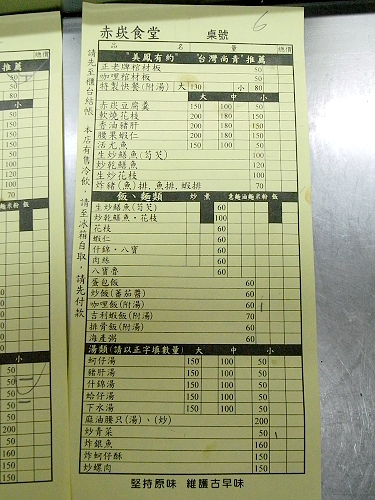 赤崁食堂 桌號 6
品名 量 總價
"美鳳有約" "台灣尚青"推薦
正老牌棺材板 50
咖哩棺材板 50
特製快餐(附湯) 大 130 小 80
大 中 小
赤崁豆腐羹 150 100 50
軟燒花枝 200 180 150
香油豬肝 200 180 150
腰果蝦仁 200 180 150
活尤魚 150 100 50
生炒鱔魚(芶芡) 100
炒乾鱔魚 120
生炒花枝 100
炸豬(魚)排,魚排,蝦排 70
飯、麵類 炒 煮 意麵油麵米粉 飯
生炒鱔魚(芶芡) 60
炒乾鱔魚‧花枝 100
花枝 60
蝦仁 60
什錦‧八寶 60
肉絲 60
八寶魯 60
蛋包飯 60
炒飯(蕃茄醬) 60
咖哩飯(附湯) 60
吉利蝦飯(附湯) 70
排骨飯(附湯) 60
海產粥 60
湯類(請以正字填數量) 大 中 小
蚵仔湯 150 100 50
豬肝湯 150 100 50
什錦湯 150 100 50
蛤仔湯 150 100 50
下水湯 150 100 50
麻油腰只(湯)、(炒) 200
炒青菜 50
炸銀魚 160
炸蚵仔酥 150
炒螺肉 150
堅持原味 維護古早味
請先至櫃台結帳 本店有售冷飲,請至冰箱自取,請先付款
總價
推薦
50
50
80
小
50
150
150
150
50
100
120
100
70
意麵油麵米粉 飯
小
50
50
50
50
50
200
50
160
150
150